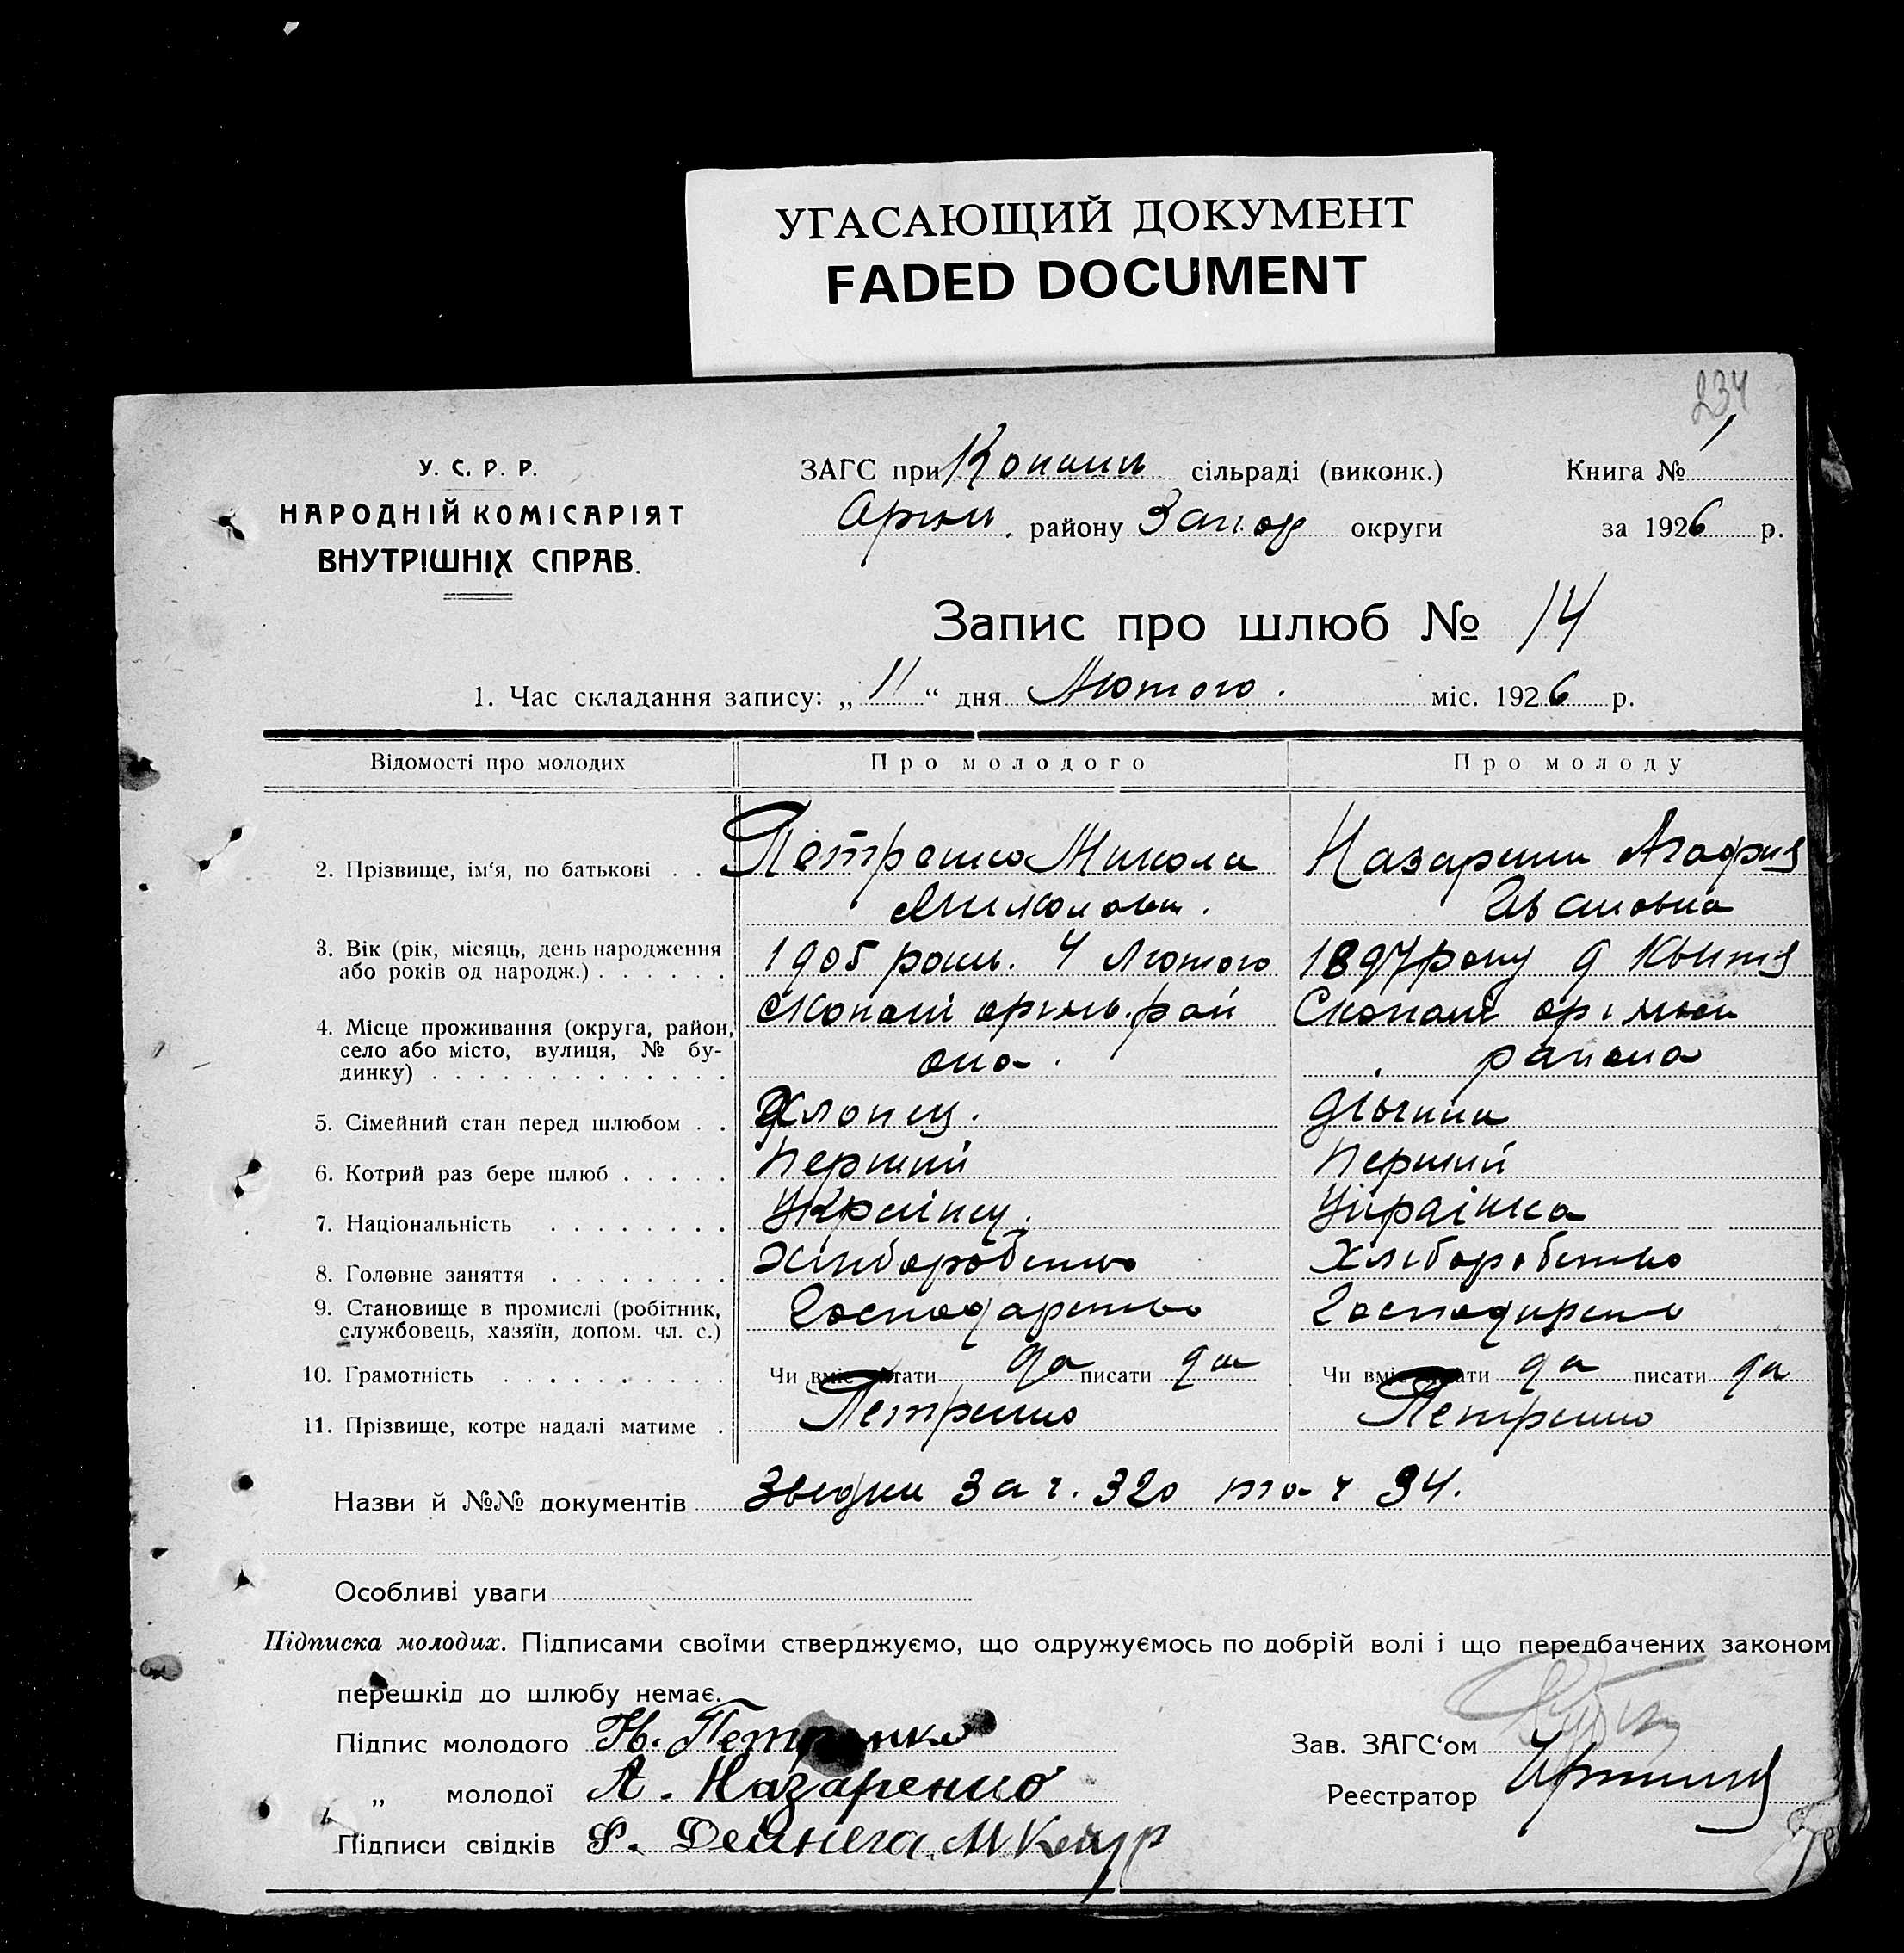 УГАСАЮЩИЙ ДОКУМЕНТ
FADED DOCUMENT
234
У. С. Р. Р.
НАРОДНІЙ КОМІСАРІЯТ
ВНУТРІШНІХ СПРАВ.
ЗАГС при Копани сільраді (виконк.)
Оріхи. району Запор округи
Книга № 1
за 1926 р.
Запис про шлюб № 14
1. Час складання запису: „ 11 “ дня Лютого. міс. 1926 р.
Відомості про молодих Про молодого Про молоду
2. Прізвище, ім‘я, по батькові . . Петренко Микола Назаренко Агафия
Миколови. Ивановна
3. Вік (рік, місяць, день народження
або років од народж.) . . . . . . 1905 року. 4 Лютого 1897 року 9 Квітня
4. Місце проживання (округа, район,
село або місто, вулиця, № бу-
динку) . . . . . . . . . . . . . с Копані оріхів. рай
она.
с Копані
района
5. Сімейний стан перед шлюбом . . Хлопец. дівчина
6. Котрий раз бере шлюб . . . . . Перший Перший
7. Національність . . . . . . . . Українец. Українка
8. Головне заняття . . . . . . . . Хліборобство Хліборобство
9. Становище в промислі (робітник,
службовець, хазяїн, допом. чл. с.) Господарство Господарств
10. Грамотність . . . . . . . . . . Чи вміє читати да писати да Чи вміє читати да писати да
11. Прізвище, котре надалі матиме . Петренко Петренко
Назви й №№ документів Зведки За ч. 320 та ч 94.
Особливі уваги
Підписка молодих. Підписами своїми стверджуємо, що одружуємось по добрій волі і що передбачених законом
перешкід до шлюбу немає.
Підпис молодого Н. Петренко Зав. ЗАГС‘ом
„ молодої А. Назаренко Реєстратор
Підписи свідків Ф. Дейнега, М